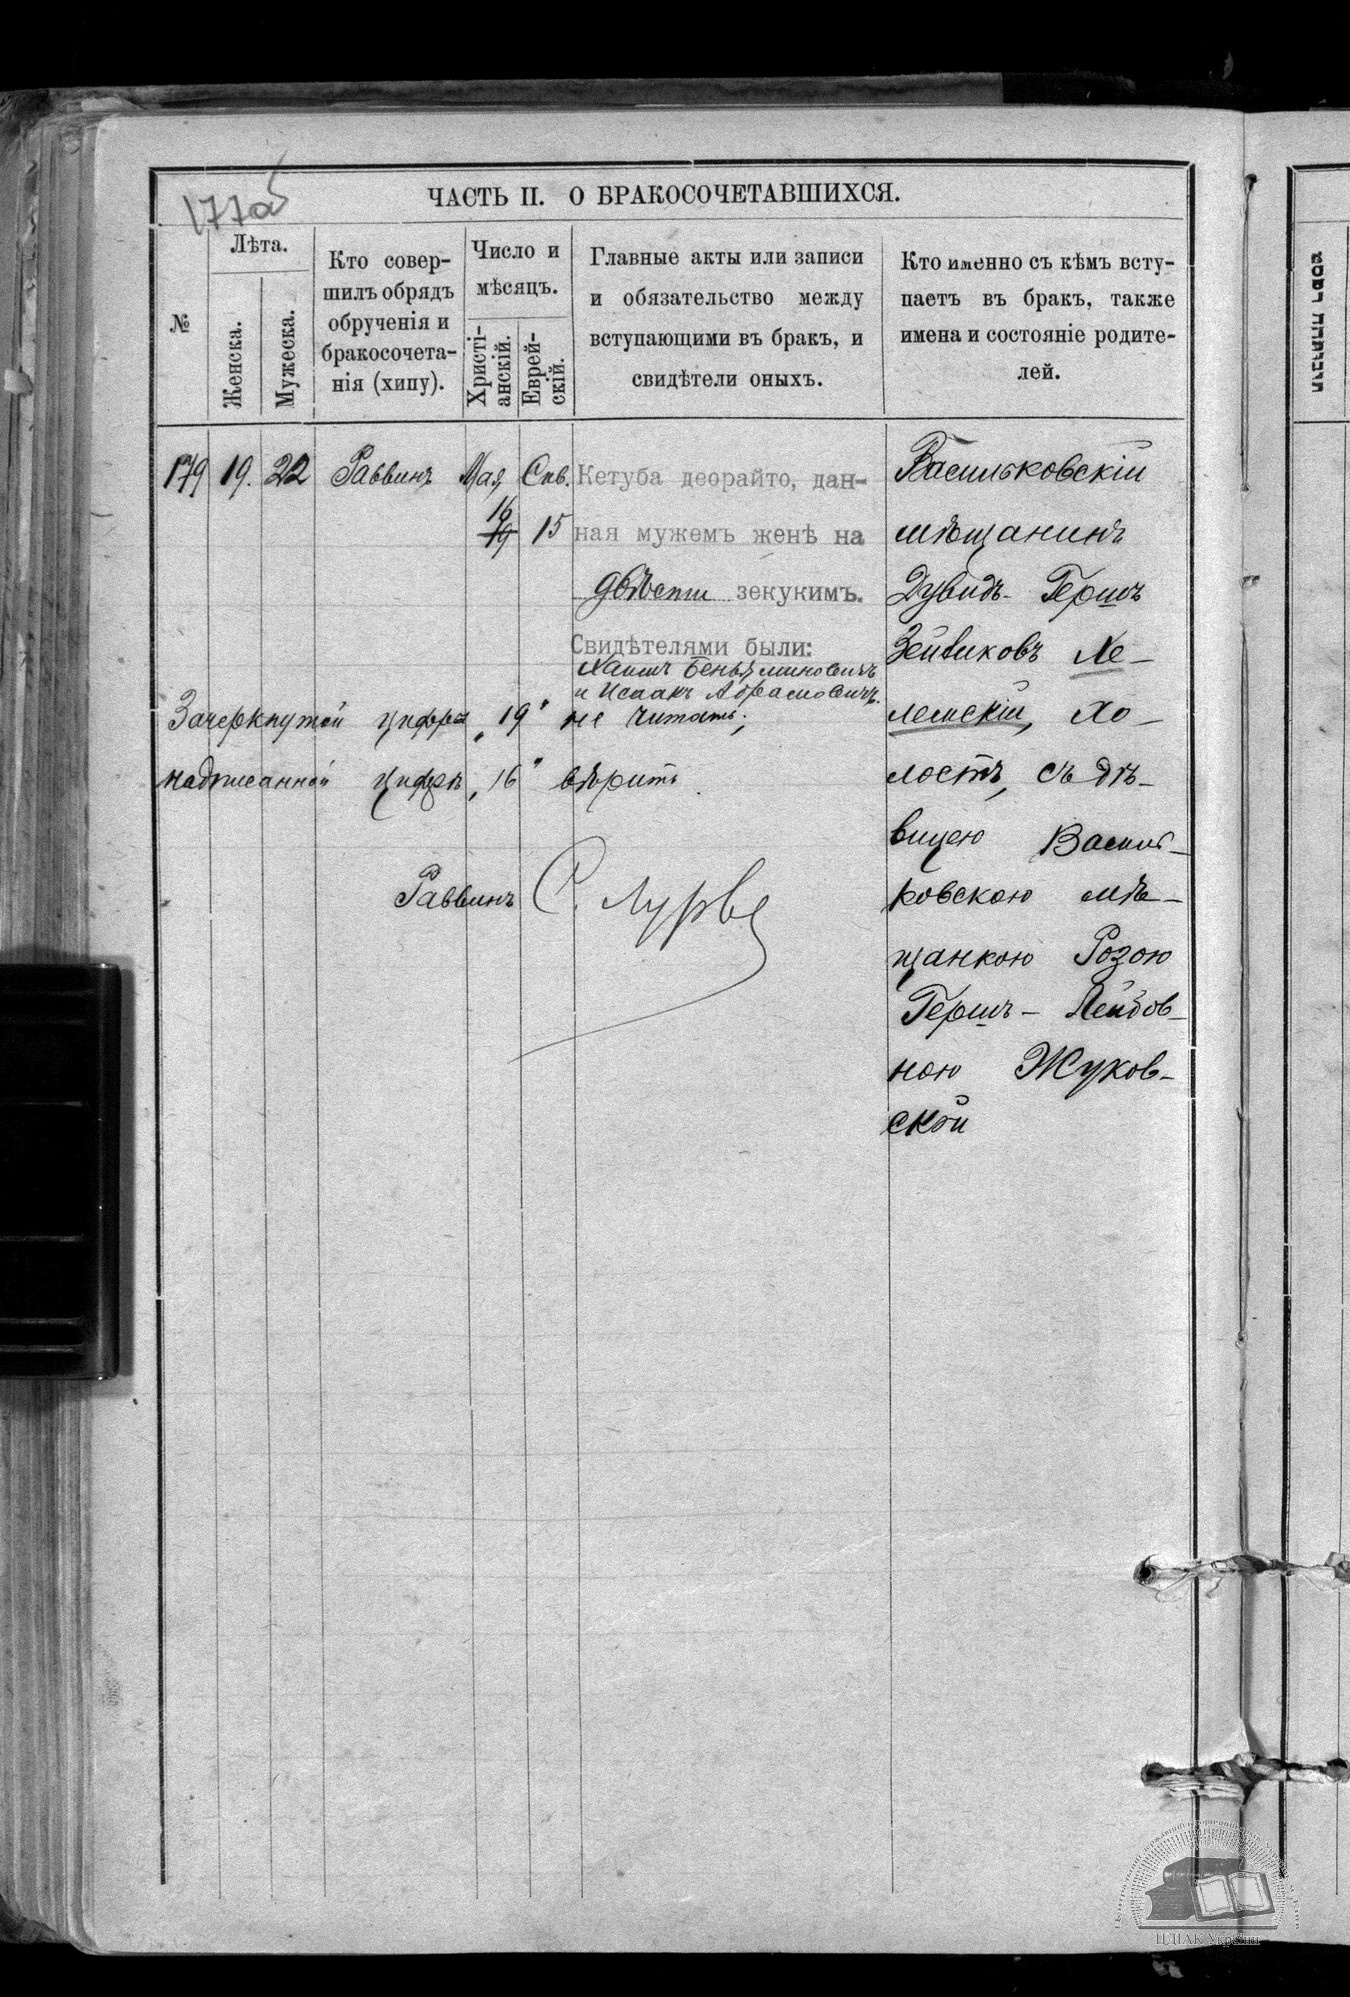 177об
ЧАСТЬ II. О БРАКОСОЧЕТАВШИХСЯ.
№
Лѣта.
Женска.
Мужеска.
Кто совер-
шилъ обрядъ
обрученія и
бракосочета-
нія (хипу).
Число и
мѣсяцъ.
Христі-
анскій.
Еврей-
скій.
Главные акты или записи
и обязательство между
вступающими въ бракъ, и
свидѣтели оныхъ.
Кто именно съ кѣмъ всту-
паетъ въ бракъ, также
имена и состояніе родите-
лей.
179 19. 22 Раввинъ Мая 16 19 Сив. 15
Кетуба деорайто, дан-
ная мужемъ женѣ на
двѣсти зекукимъ.
Свидѣтелями были:
Хаимъ Беньяминовичъ
и Исаакъ Абрамовичъ.
Васильковскій
мѣщанинъ
Дувидъ-Гершъ
Зейликовъ Хе-
лемскій, хо-
лостъ, съ дѣ-
вицею Василь-
ковскою мѣ-
щанкою Розою
Гершъ-Лейбов-
ною Жуков-
ской
Зачеркнутой цифры „19" не читать;
надписанной цифрѣ „16" вѣрить.
Раввинъ С. Лурье
ЦДІАК України